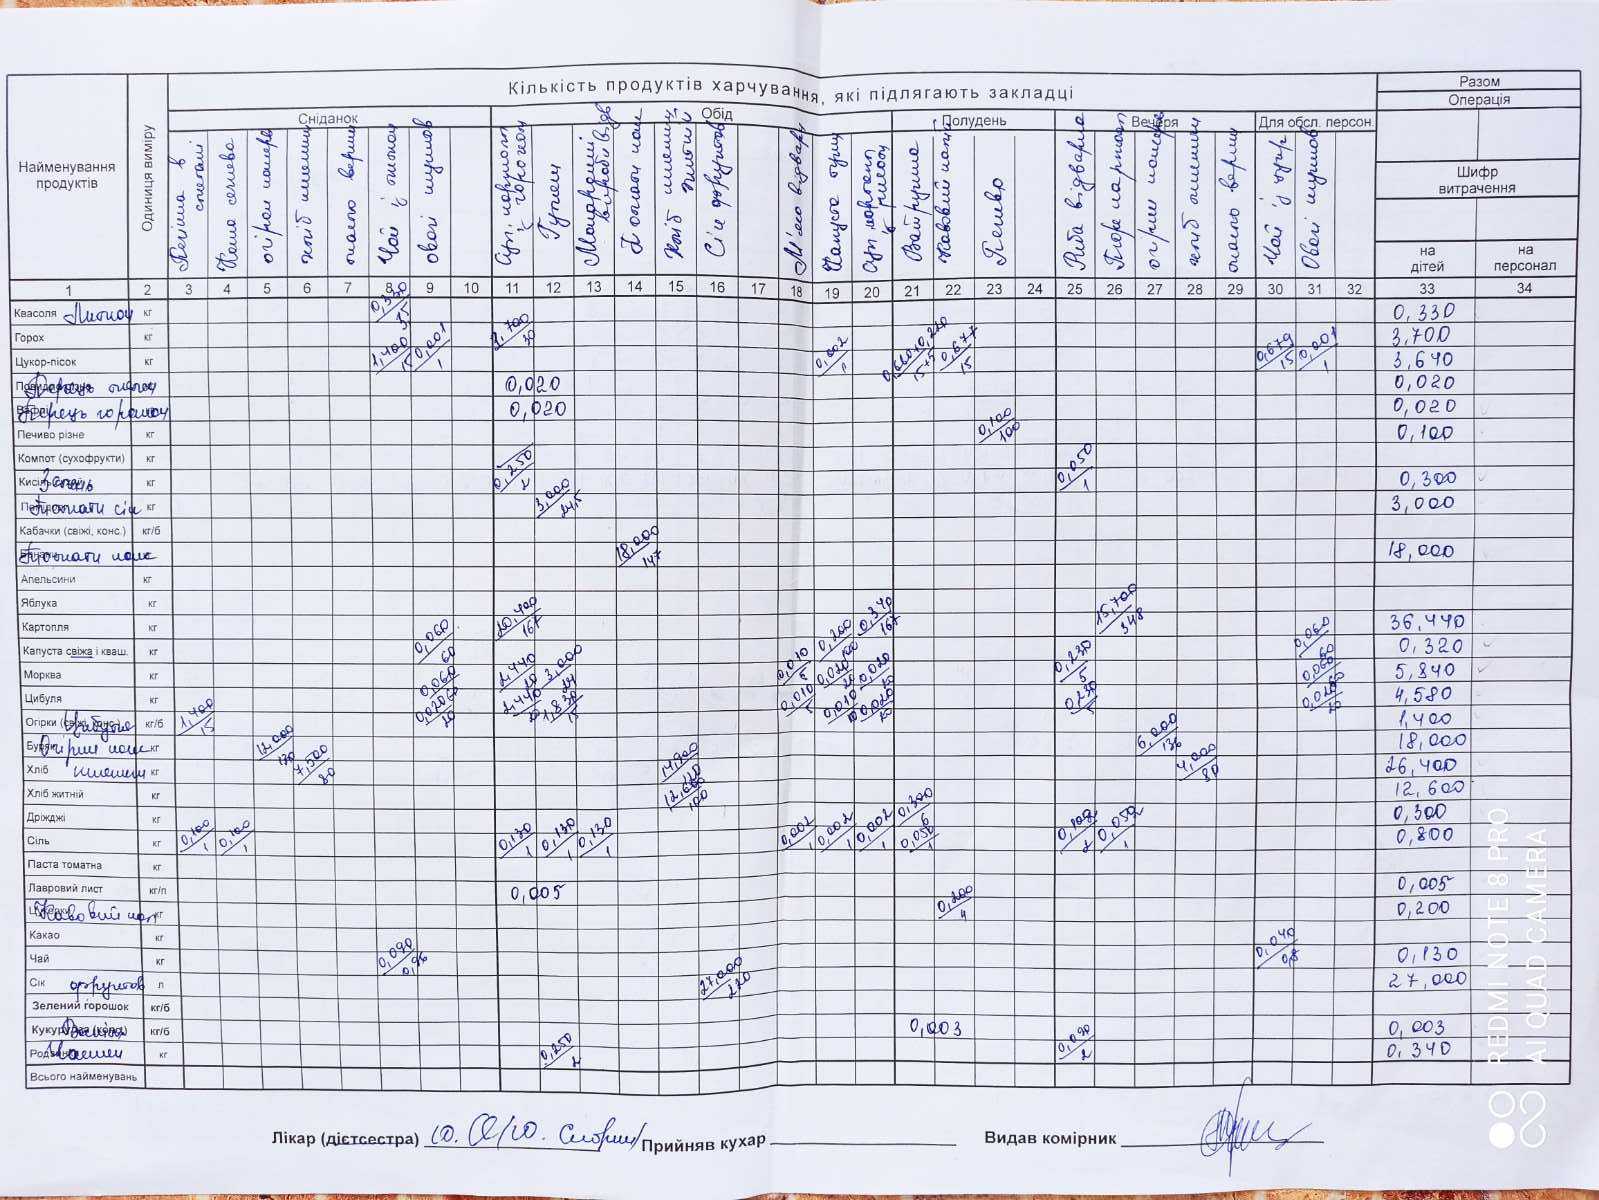 Кількість продуктів харчування, які підлягають закладці
Разом
Операція
Сніданок
Обід
Полудень
Вечеря
Для обсл. персон.
Найменування продуктів
Одиниця виміру
Шифр витрачення
на дітей
на персонал
Печінка в сметані
огірки
хліб пшеничн
масло верш
Чай з лимоном
Овочі
з горохом
Гуляш
Макаронні вироби відв
Томати кон
хліб пшеничн житній
Сік фруктов
М'ясо відварне
Капуста туш
Суп
з рисом
Ватрушка
Кавовий нап
Печиво
Риба відварна
Пюре картоп
огірки
хліб пшенич
масло верш
Чай з цукр
Овочі
1 2 3 4 5 6 7 8 9 10 11 12 13 14 15 16 17 18 19 20 21 22 23 24 25 26 27 28 29 30 31 32 33 34
Квасоля Лимон кг 0,330 0,330
Горох кг 3,700/30 3,700
Цукор-пісок кг 1,400/15 0,001/1 0,002/1 0,677/15 0,679/15 0,001/1 3,640
Перець 0,020 0,020
Перець горошок 0,020 0,020
Печиво різне кг 0,100/100 0,100
Компот (сухофрукти) кг
Зелень кг 0,250/2 0,050/1 0,300
Томати сік кг 3,000/24,5 3,000
Кабачки (свіжі, конс.) кг/б
Томати конс кг 18,000/147 18,000
Апельсини кг
Яблука кг
Картопля кг 0,060/60 20,400/167 0,200/100 0,340/167 15,700/348 0,060/60 36,440
Капуста свіжа і кваш. кг 0,010/5 0,230/5 0,320
Морква кг 0,060 2,440/20 3,000/24 0,020/20 0,020/10 0,060 5,840
Цибуля кг 2,440/20 1,830/15 0,010/5 0,010/10 0,020/10 0,230/5 4,580
Огірки (свіжі, конс.) кг/б 1,400/15 1,400
Буряк Огірки кон кг 12,000/170 6,000/136 18,000
Хліб пшенич кг 7,500/80 14,900 4,000/80 26,400
Хліб житній кг 12,600/100 12,600
Дріжджі кг 0,300/6 0,300
Сіль кг 0,100/1 0,100/1 0,130/1 0,130/1 0,130/1 0,002/1 0,002/1 0,002/1 0,050/1 0,102/2 0,050/1 0,800
Паста томатна кг
Лавровий лист кг/п 0,005 0,005
Кавовий нап кг 0,200/4 0,200
Какао кг
Чай кг 0,090 0,040/0,8 0,130
Сік фруктов л 27,000/220 27,000
Зелений горошок кг/б
Ванілін кг/б 0,003 0,003
кг 0,250/2 0,090/2 0,340
Всього найменувань
Лікар (дієтсестра)
Прийняв кухар
Видав комірник
REDMI NOTE 8 PRO
AI QUAD CAMERA